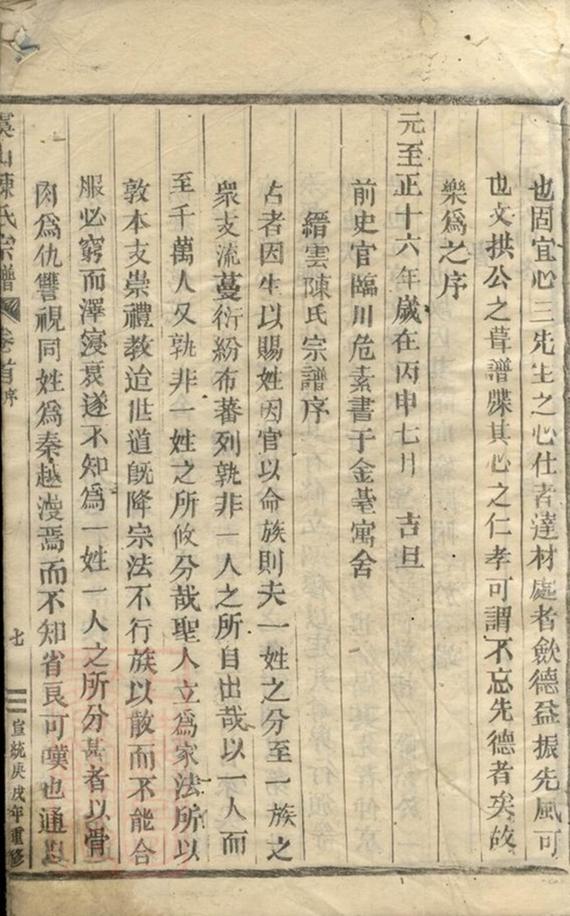 也固宜心三先生之心仕者達材處者斂德益振先風可
也文拱公之葺譜牒其心之仁孝可謂不忘先德者矣故
樂爲之序
元至正十六年歲在丙申七月 吉旦
前史官臨川危素書于金臺寓舍
縉雲陳氏宗譜序
古者因生以賜姓因官以命族則夫一姓之分至一族之
衆支流蔓衍紛布蕃列孰非一人之所自出哉以一人而
至千萬人又孰非一姓之所攸分哉聖人立爲家法所以
敦本支崇禮教迨世道既降宗法不行族以散而不能合
服必窮而澤寖衰遂不知爲一姓一人之所分甚者以骨
肉爲仇讐視同姓爲秦越漫焉而不知省良可嘆也通
山陳氏宗譜 卷首 序 七 宣統庚戌年重修